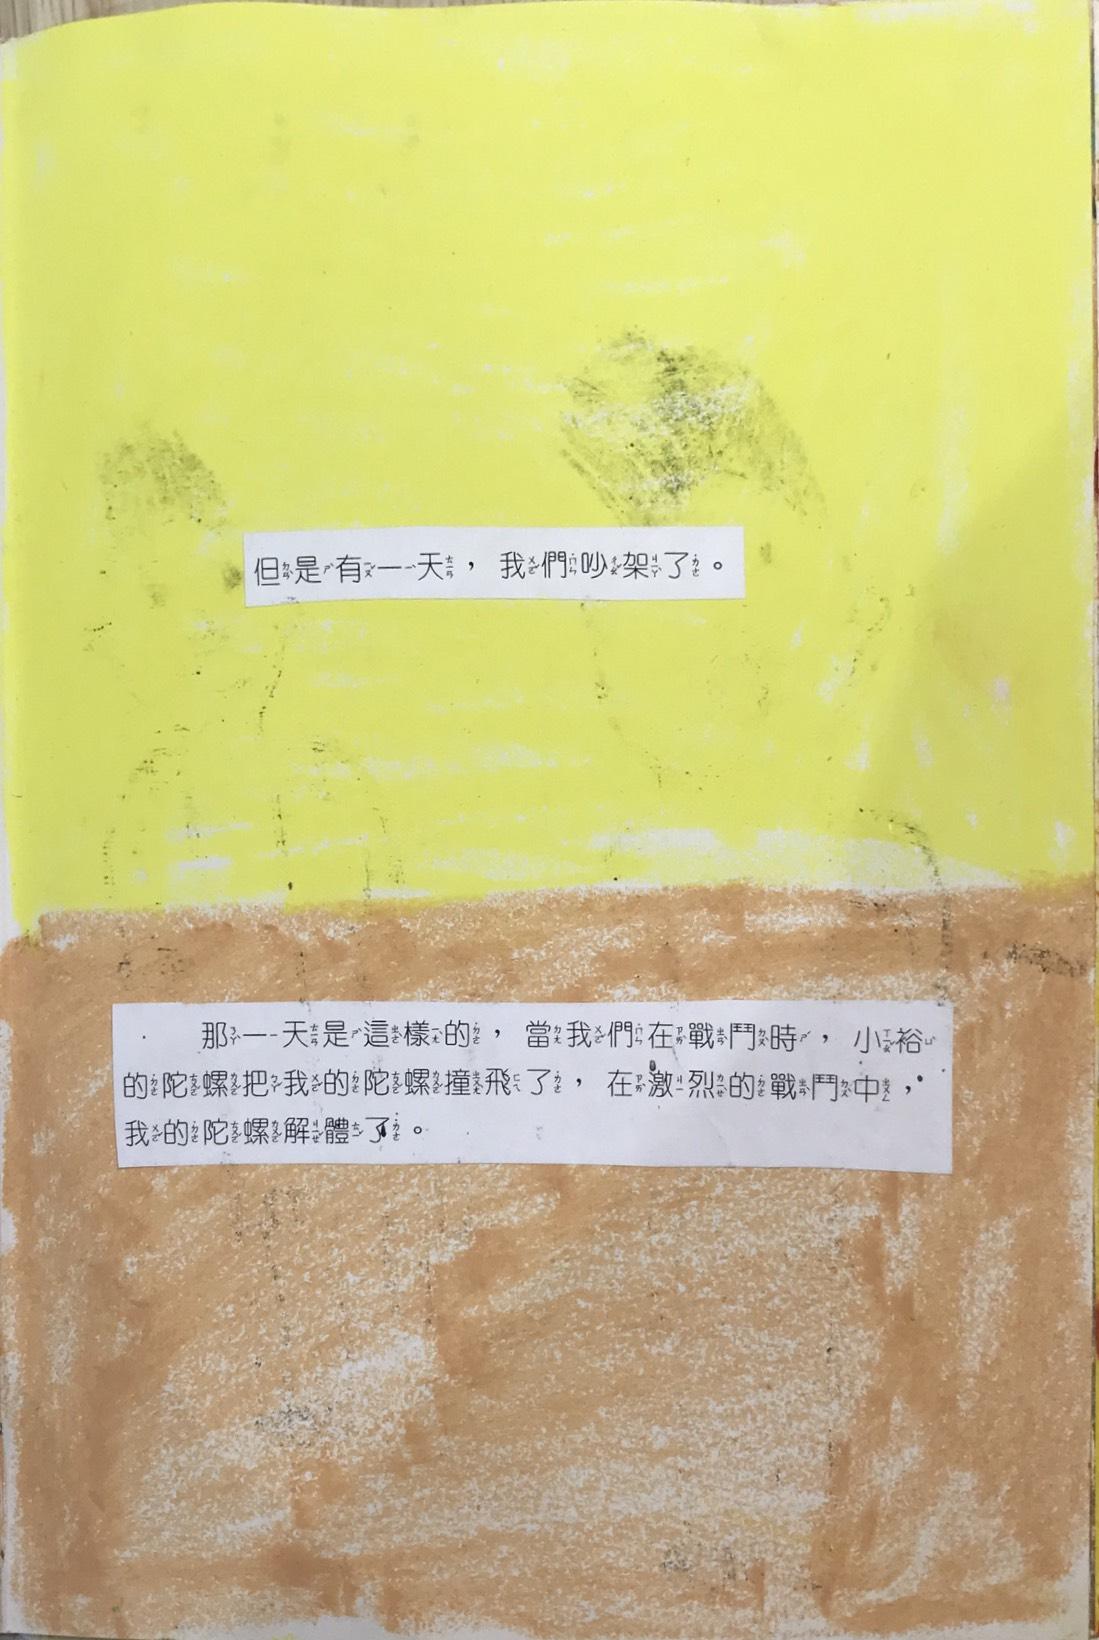 但是有一天，我們吵架了。
那一天是這樣的，當我們在戰鬥時，小裕
的陀螺把我的陀螺撞飛了，在激烈的戰鬥中，
我的陀螺解體了。